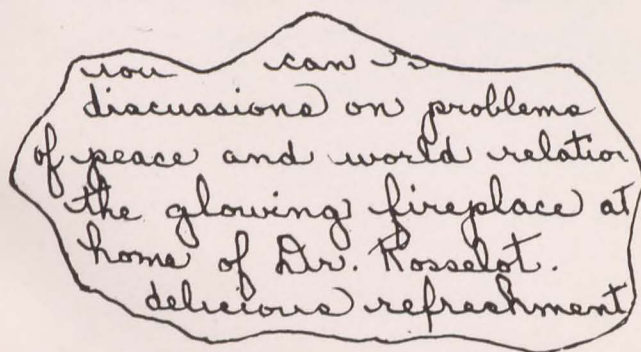 you can
discussions on problems
of peace and world relation
the glowing fireplace at
home of Dr. Rosselot.
delicious refreshment